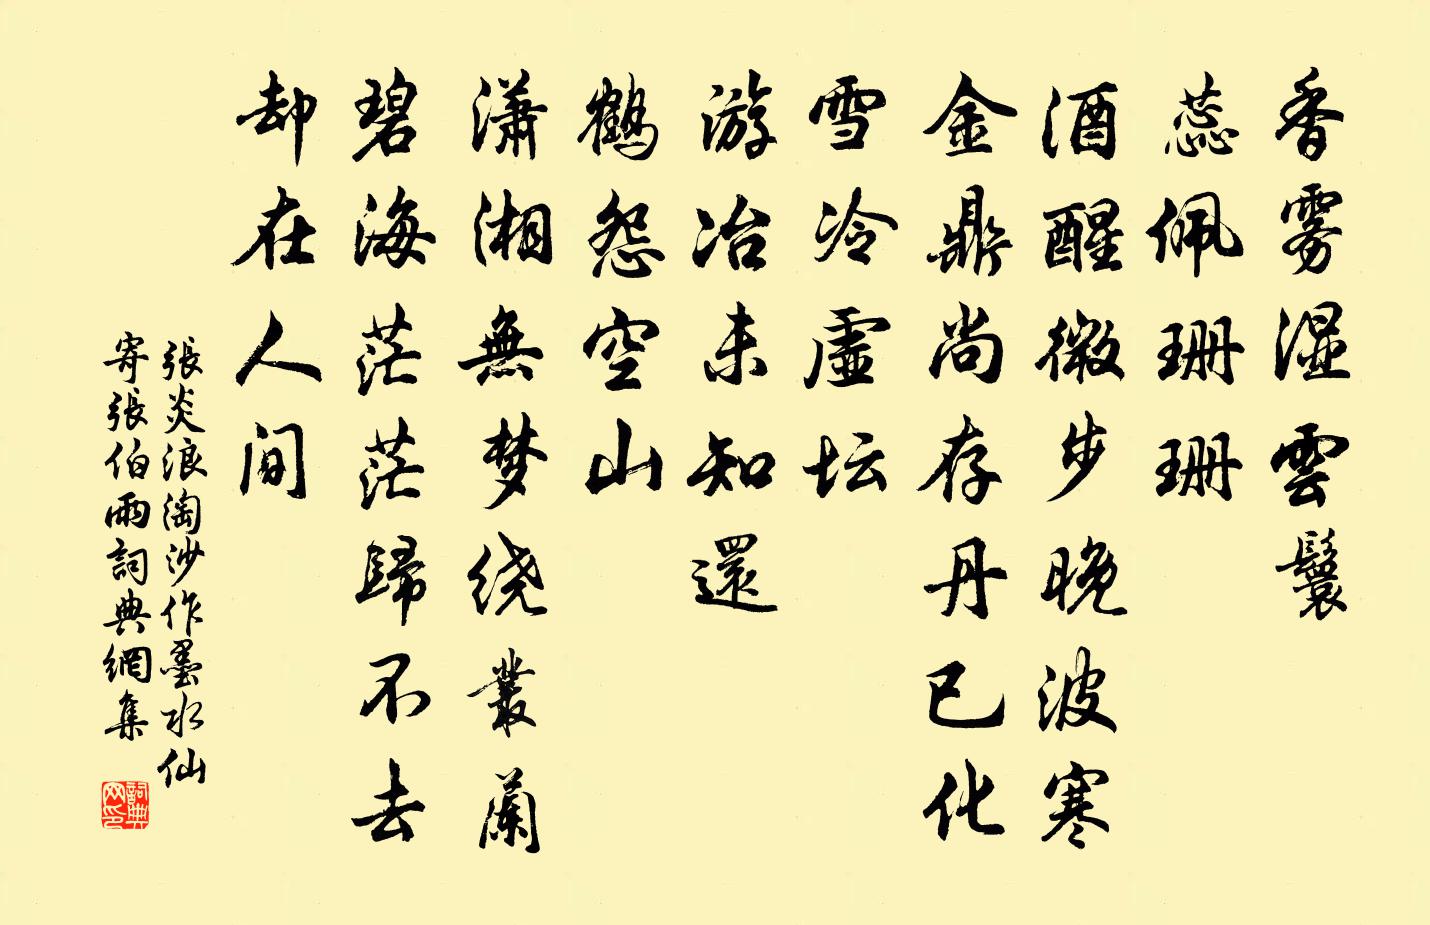 香雾湿雲鬟
蕊佩珊珊
酒醒微步晚波寒
金鼎尚存丹已化
雪冷虚坛
游冶未知還
鶴怨空山
潇湘無梦绕叢蘭
碧海茫茫歸不去
却在人间
張炎浪淘沙作墨水仙
寄張伯雨詞典網集
詞典网印